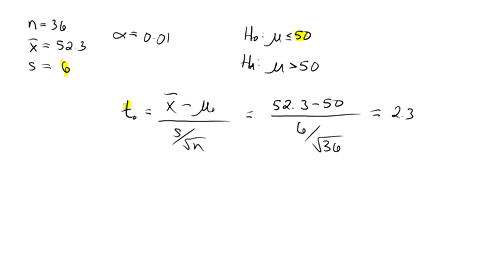 n = 36
x̄ = 52.3
s = 6
α = 0.01
H₀: μ ≤ 50
Hₐ: μ > 50
t₀ = x̄ − μ / s/√n = 52.3 − 50 / 6/√36 = 2.3